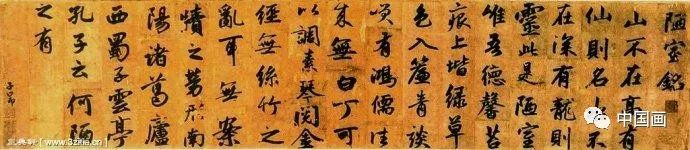 陋室銘
山不在高有
仙則名水不
在深有龍則
靈此是陋室
惟吾德馨苔
痕上堦緑草
色入簾青談
咲有鴻儒往
来無白丁可
以調素琴閱金
經無絲竹之
亂耳無案
牘之勞形南
陽諸葛廬
西蜀子雲亭
孔子云何陋
之有
子昂
中国画